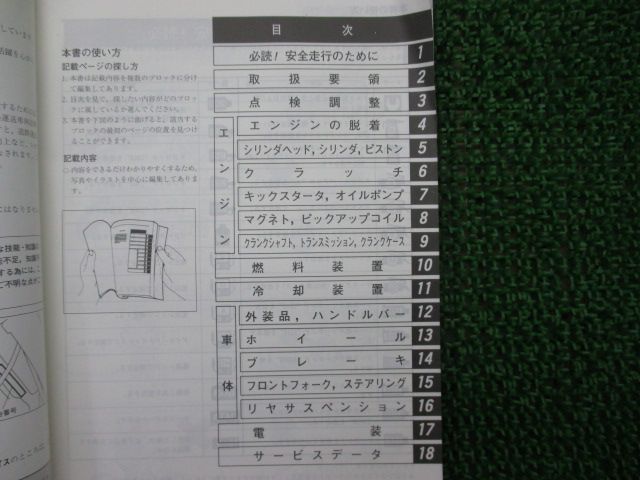 本書の使い方
記載ページの探し方
1. 本書は記載内容を複数のブロックに分け
て編集してあります。
2. 目次を見て、探したい内容がどのブロッ
クに属しているか選んでください。
3. 本書を下図のように曲げると、該当する
ブロックの最初のページの位置を見つけ
ることができます。
記載内容
○内容をできるだけわかりやすくするため、
写真やイラストを中心に編集してありま
す。
目次
必読！安全走行のために 1
取扱要領 2
点検調整 3
エンジン
エンジンの脱着 4
シリンダヘッド, シリンダ, ピストン 5
クラッチ 6
キックスタータ, オイルポンプ 7
マグネト, ピックアップコイル 8
クランクシャフト, トランスミッション, クランクケース 9
燃料装置 10
冷却装置 11
車体
外装品, ハンドルバー 12
ホイール 13
ブレーキ 14
フロントフォーク, ステアリング 15
リヤサスペンション 16
電装 17
サービスデータ 18